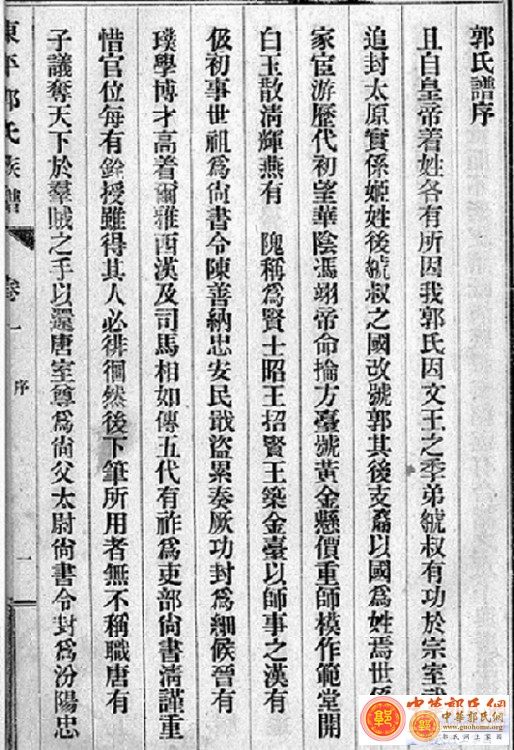 郭氏譜序
且自皇帝着姓各有所因我郭氏因文王之季弟虢叔有功於宗室武
追封太原實係姬姓後虢叔之國改號郭其後支裔以國為姓焉世係
家宦游歷代初望華陰馮翊帝命掄方臺號黃金懸價重師模作範堂開
白玉散淸輝燕有 隗稱為賢士昭王招賢王築金臺以師事之漢有
伋初事世祖為尙書令陳善納忠安民戢盜累奏厥功封為細候晉有
璞學博才高着爾雅西漢及司馬相如傳五代有祚為吏部尙書淸謹重
惜官位每有銓授雖得其人必徘徊然後下筆所用者無不稱職唐有
子議奪天下於羣賊之手以還唐室尊為尙父太尉尙書令封為汾陽忠
東平郭氏族譜 卷一 序 一
中华郭氏网
中華郭氏網
www.guohome.org
郭氏網上家園